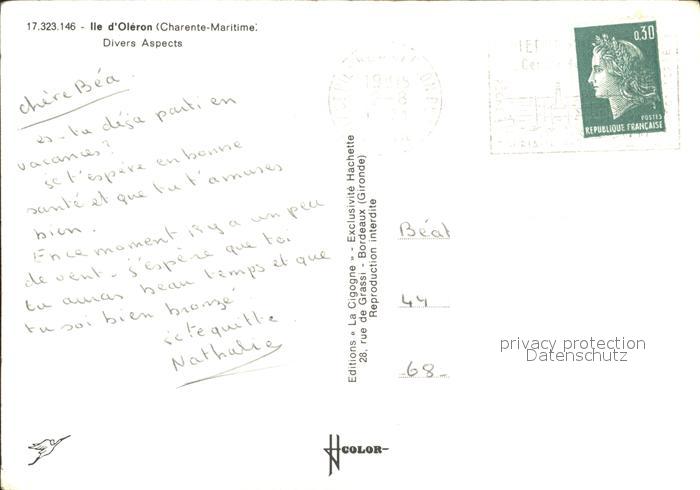 17.323.146 - Ile d'Oléron (Charente-Maritime)
Divers Aspects
chère Béa.
es-tu déja parti en
vacances?
je t'espère en bonne
santé et que tu t'amuses
bien.
En ce moment il y a un peu
de vent - j'espère que toi
tu auras beau temps et que
tu soi bien bronzé
je te quitte.
Nathalie
Editions « La Cigogne » - Exclusivité Hachette
28, rue de Grassi - Bordeaux (Gironde)
Reproduction interdite
0.30
POSTES
REPUBLIQUE FRANÇAISE
Béat
44
68-
privacy protection
Datenschutz
COLOR